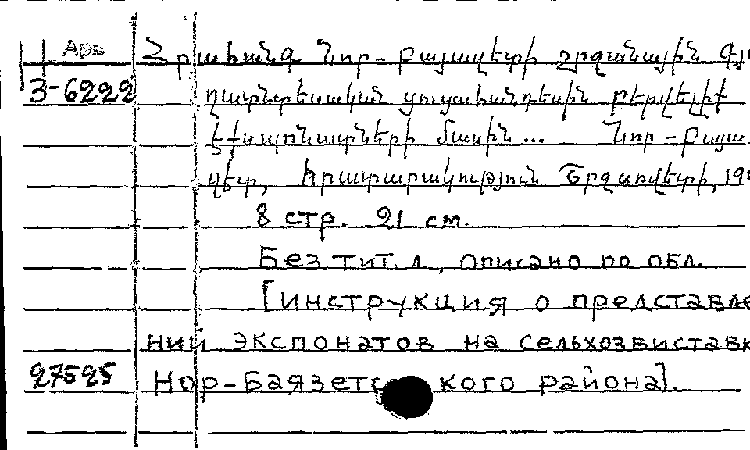 Арм
Հրահանգ Նոր-Բայազետի շրջանային գյու
3-6222 ղատնտեսական ցուցահանդեսին բերվելիք
էքսպոնատների մասին... Նոր-Բայա
զետ, հրատարակություն Շրջսովետի, 19
8 стр. 21 см.
Без тит. л., описано по обл.
[Инструкция о представле
ний экспонатов на сельхозвиставк
27525 Нор-Баязетского района].